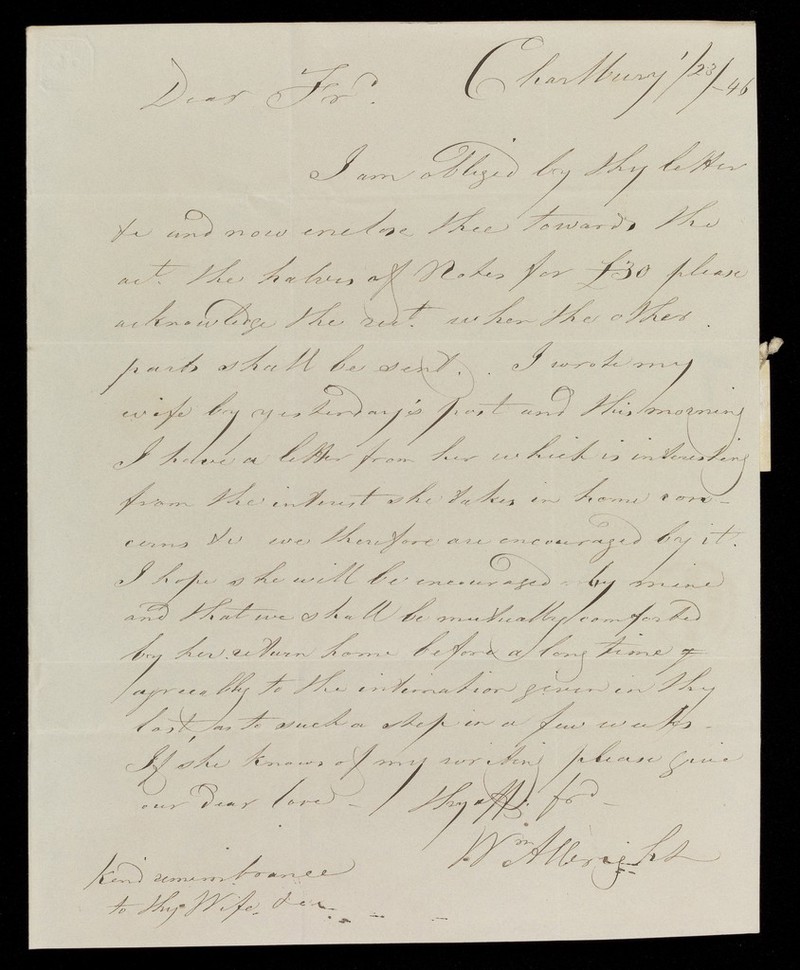 Charlbury 1/23/-46
Dear Frd.
I am obliged by thy letter
&c and now enclose thee towards the
act. the halves of Notes for £30 please
acknowledge the rect. when the other
parts shall be sent. . I wrote my
wife by yesterday's post and this morning
I have a letter from her which is interesting
from the interest she takes in home con-
cerns &c we therefore are encouraged by it.
I hope she will be encouraged by mine
and that we shall be mutually comforted
by her return home before a long time &
agreeably to the intimation given in thy
last, as to such a step in a few weeks -
If she knows of my writing please give
our dear love - thy aff. frd -
Wm Albright
Kind remembrance
to thy Wife &c